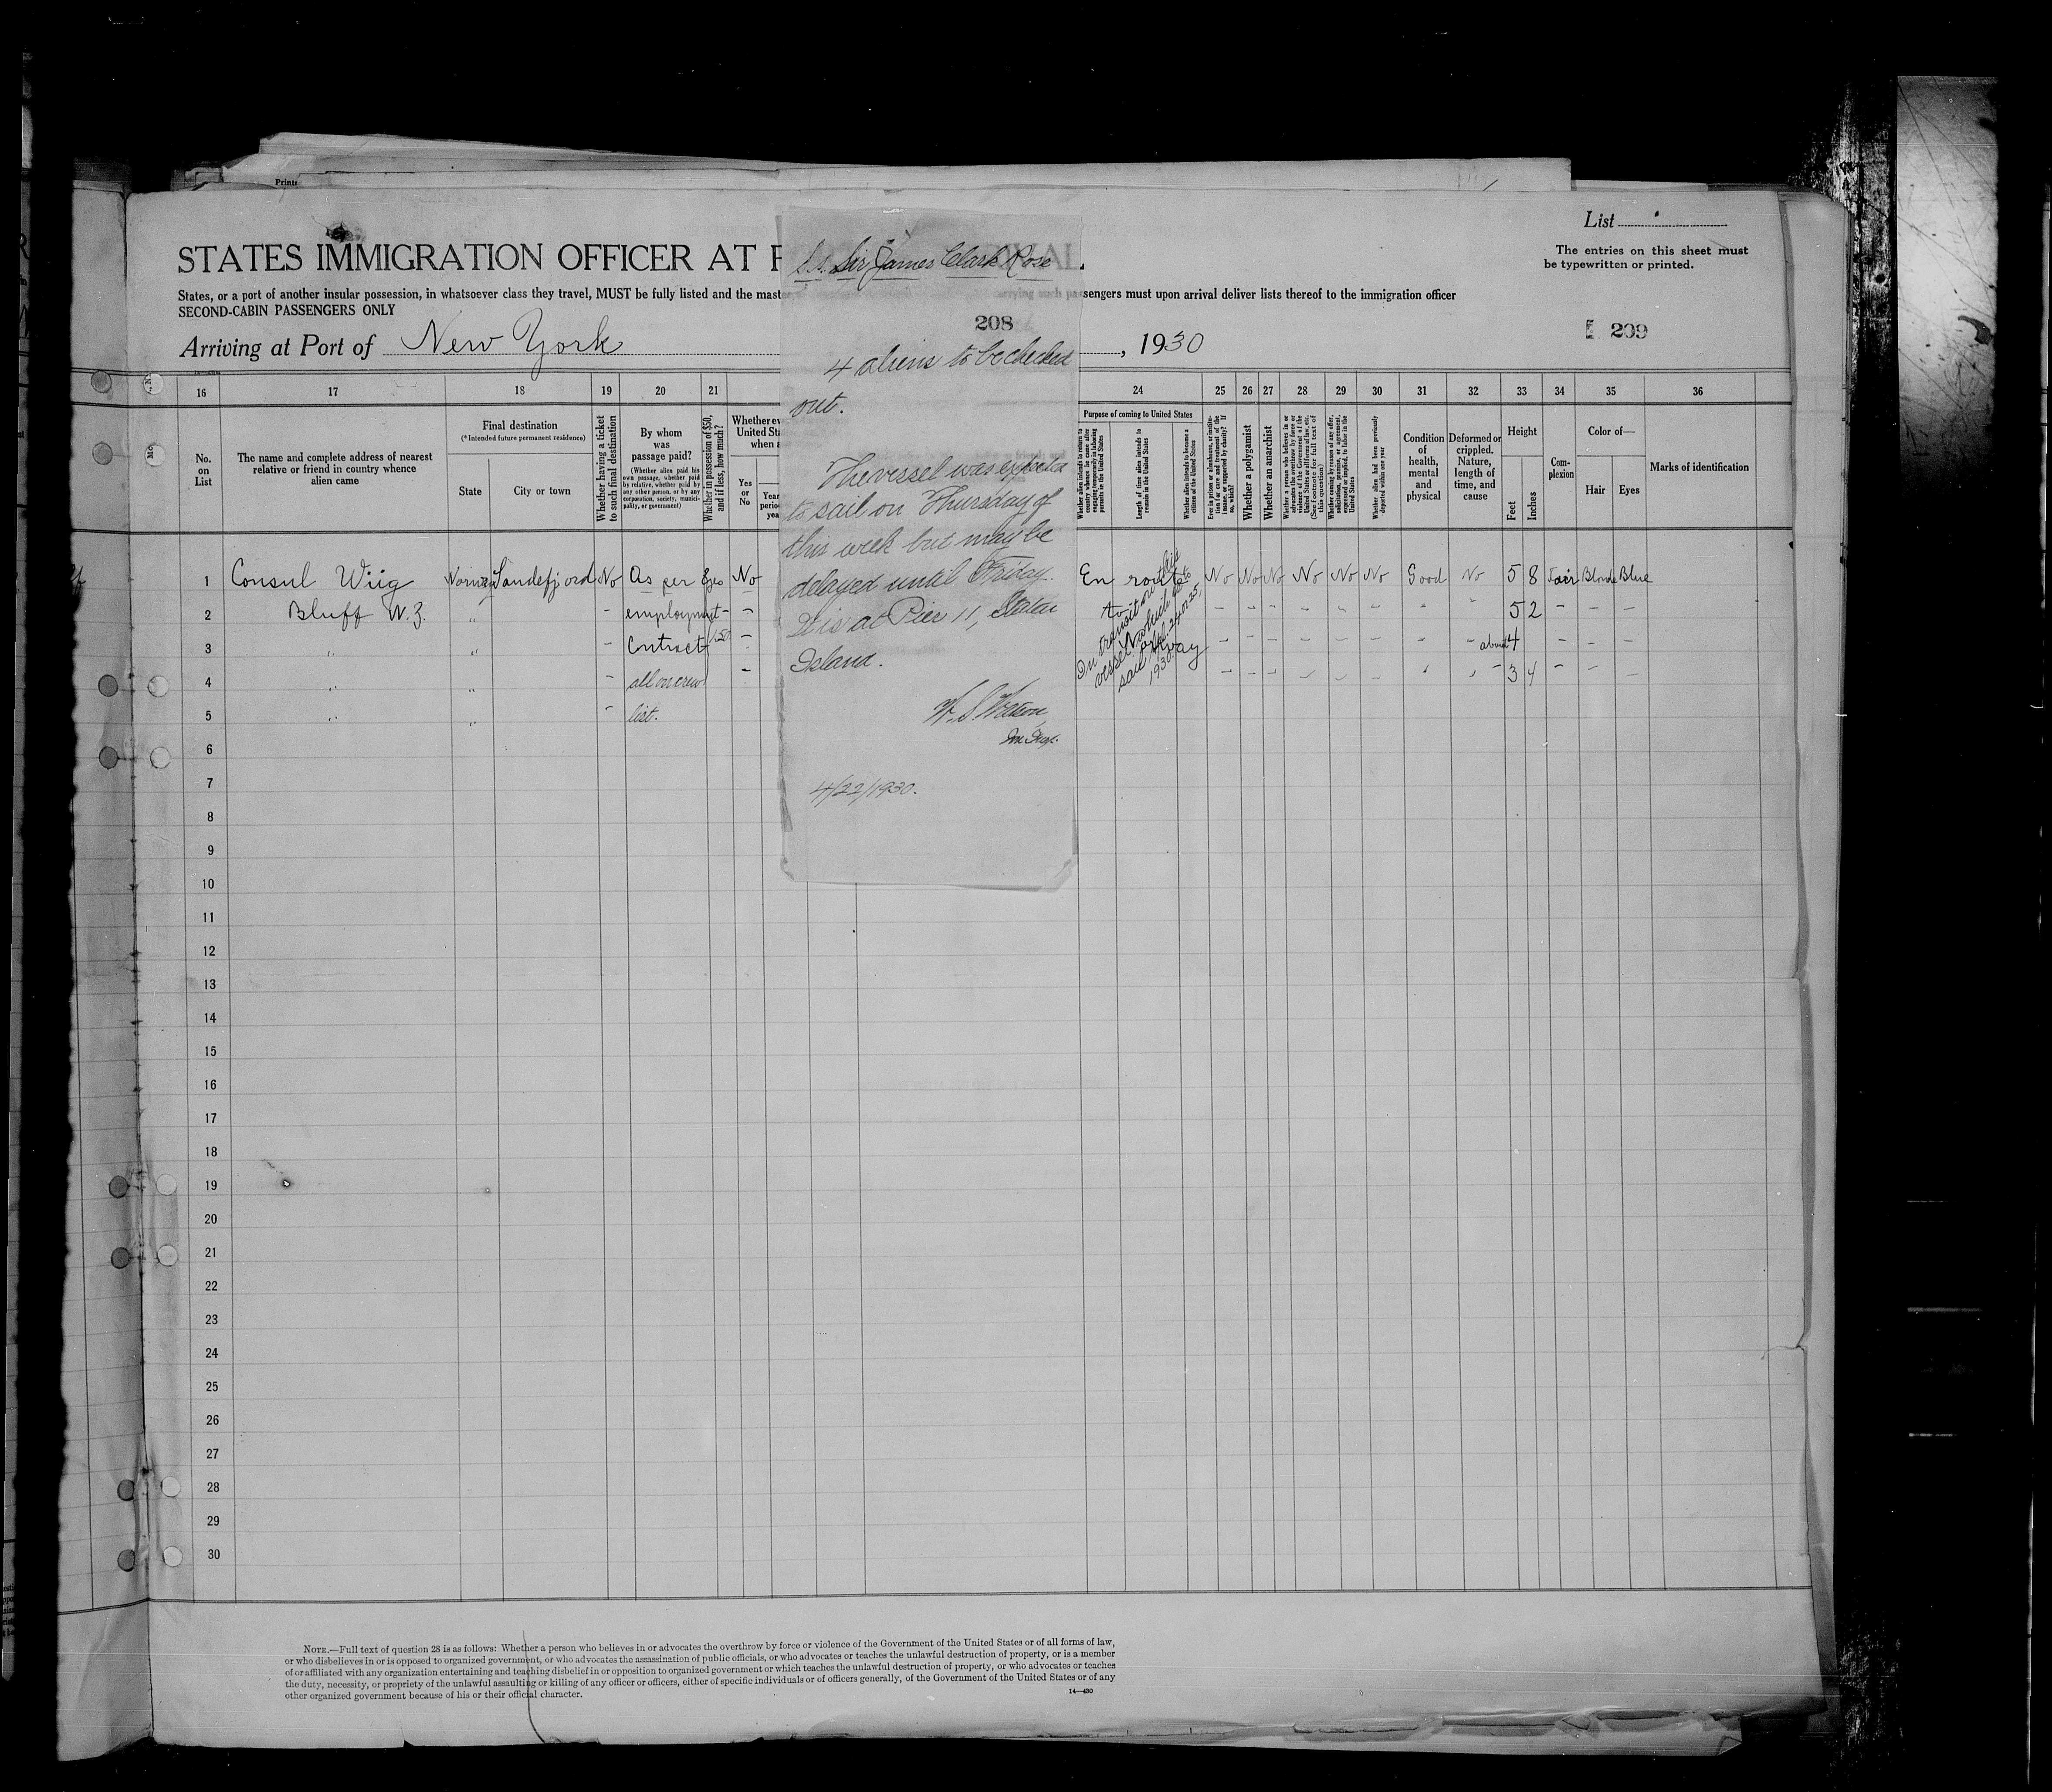 List
STATES IMMIGRATION OFFICER AT
The entries on this sheet must
be typewritten or printed.
States, or a port of another insular possession, in whatsoever class they travel, MUST be fully listed and the mast
arrying such passengers must upon arrival deliver lists thereof to the immigration officer
SECOND-CABIN PASSENGERS ONLY
Arriving at Port of New York , 1930
209
S.S. Sir James Clark Rose
208
4 aliens to be checked
out.
The vessel was expected
to sail on Thursday of
this week but may be
delayed until Friday.
It is at Pier 11, Staten
Island.
W. S. Watson,
4/22/1930.
16 17 18 19 20 21 24 25 26 27 28 29 30 31 32 33 34 35 36
No. on List
The name and complete address of nearest
relative or friend in country whence
alien came
Final destination
(*Intended future permanent residence)
State
City or town
Whether having a ticket
to such final destination
By whom
was
passage paid?
(Whether alien paid his
own passage, whether paid
by relative, whether paid by
any other person, or by any
corporation, society, munici-
pality, or government)
Whether in possession of $50,
and if less, how much?
Whether ev
United Sta
when a
Yes
or
No
Year
perio
yea
Purpose of coming to United States
Whether alien intends to return to
country whence he came after
engaging temporarily in laboring
pursuits in the United States
Length of time alien intends to
remain in the United States
Whether alien intends to become a
citizen of the United States
Ever in prison or almshouse, or institu-
tion for care and treatment of the
insane, or supported by charity? If
so, which?
Whether a polygamist
Whether an anarchist
Whether a person who believes in or
advocates the overthrow by force or
violence of the Government of the
United States or all forms of law, etc.
(See footnote for full text of
this question)
Whether coming by reason of any offer,
solicitation, promise, or agreement,
expressed or implied, to labor in the
United States
Whether alien had been previously
deported within one year
Condition
of
health,
mental
and
physical
Deformed or
crippled.
Nature,
length of
time, and
cause
Height
Feet
Inches
Com-
plexion
Color of—
Hair
Eyes
Marks of identification
1 Consul Wiig Norway Sandefjord No As per yes No En route No No No No No No Good No 5 8 Fair Blonde Blue
2 Bluff N.Z. " - employment - - to - - - - - - " " 5 2 - - -
3 " " - Contract 150 - - - - - - - " " about 4 - - -
4 " " - all on crew - - - - - - - " " 3 4 - - -
5 " " - list.
In transit on this
vessel which is to
sail Apl. 24 or 25,
1930.
6
7
8
9
10
11
12
13
14
15
16
17
18
19
20
21
22
23
24
25
26
27
28
29
30
NOTE.—Full text of question 28 is as follows: Whether a person who believes in or advocates the overthrow by force or violence of the Government of the United States or of all forms of law,
or who disbelieves in or is opposed to organized government, or who advocates the assassination of public officials, or who advocates or teaches the unlawful destruction of property, or is a member
of or affiliated with any organization entertaining and teaching disbelief in or opposition to organized government or which teaches the unlawful destruction of property, or who advocates or teaches
the duty, necessity, or propriety of the unlawful assaulting or killing of any officer or officers, either of specific individuals or of officers generally, of the Government of the United States or of any
other organized government because of his or their official character.
14—430